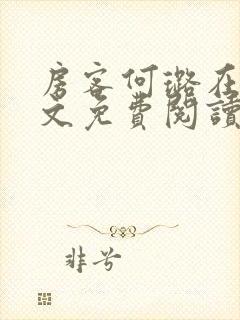 房客何璐在
文免費閱讀
非兮